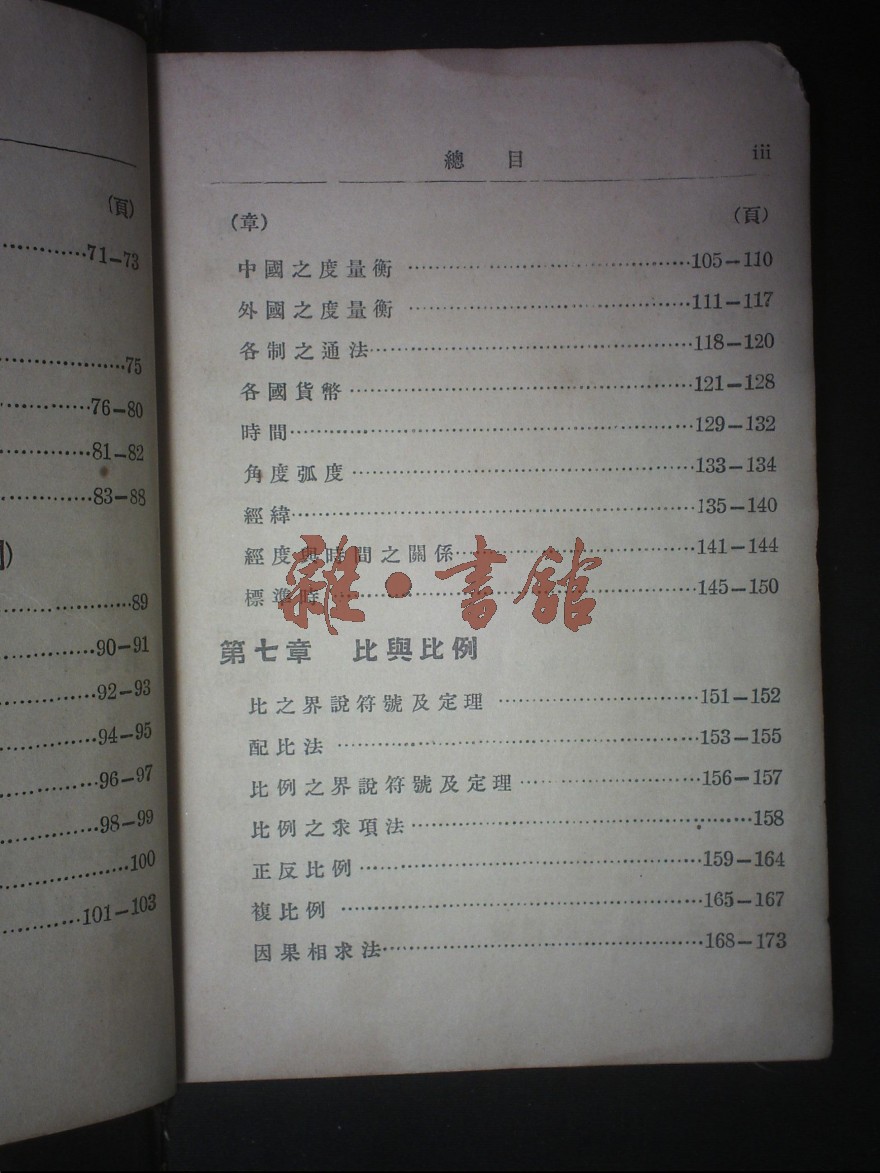 (頁)
71–73
75
76–80
81–82
83–88
89
90–91
92–93
94–95
96–97
98–99
100
101–103
總 目 iii
(章) (頁)
中國之度量衡 105–110
外國之度量衡 111–117
各制之通法 118–120
各國貨幣 121–128
時間 129–132
角度弧度 133–134
經緯 135–140
經度與時間之關係 141–144
標準時 145–150
雜·書館
第七章 比與比例
比之界說符號及定理 151–152
配比法 153–155
比例之界說符號及定理 156–157
比例之求項法 158
正反比例 159–164
複比例 165–167
因果相求法 168–173